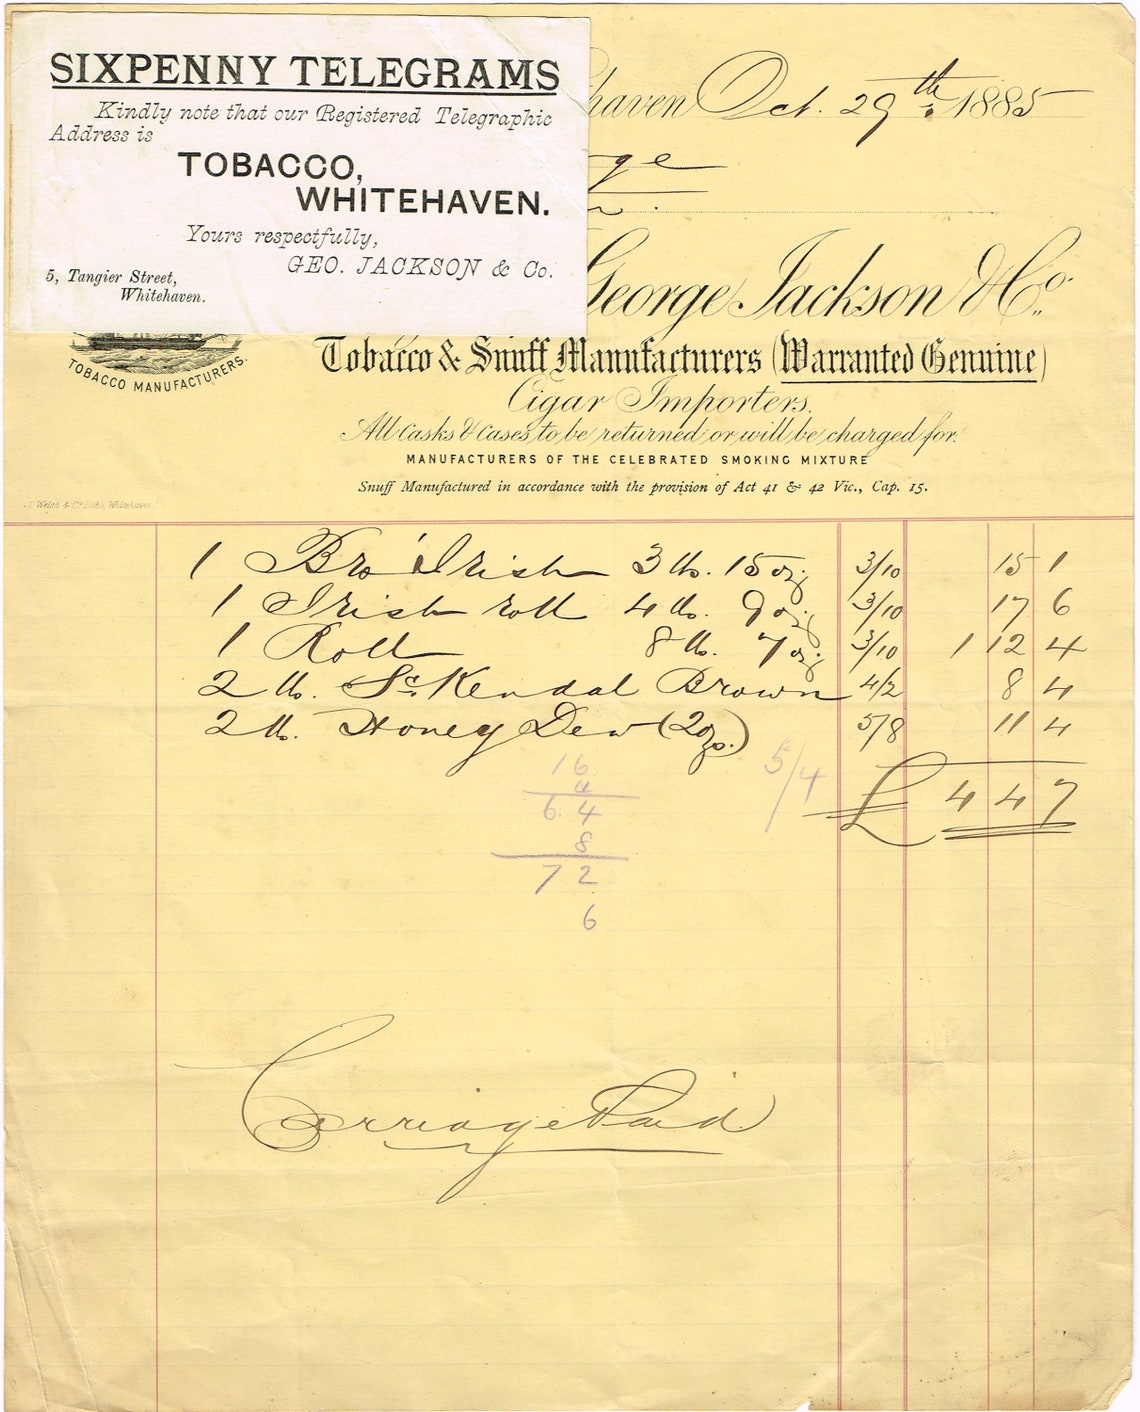 SIXPENNY TELEGRAMS
Kindly note that our Registered Telegraphic
Address is
TOBACCO,
WHITEHAVEN.
Yours respectfully,
GEO. JACKSON & Co.
5, Tangier Street,
Whitehaven.
haven Oct. 29th 1885
ge
George Jackson & Co.
TOBACCO MANUFACTURERS.
Tobacco & Snuff Manufacturers (Warranted Genuine)
Cigar Importers.
All Casks & Cases, to be returned or will be charged for.
MANUFACTURERS OF THE CELEBRATED SMOKING MIXTURE
Snuff Manufactured in accordance with the provision of Act 41 & 42 Vic., Cap. 15.
Welsh & Co. Litho, Whitehaven.
1 Bro Irish 3 lb. 15 oz 3/10 15 1
1 Irish roll 4 lb. 9 oz 3/10 17 6
1 Roll 8 lb. 7 oz 3/10 1 12 4
2 lb. Sc. Kendal Brown 4/2 8 4
2 lb. Honey Dew (2 ozs.) 5/8 11 4
£ 4 4 7
5/4
16
4
6.4
8
72
6
Carriage Paid